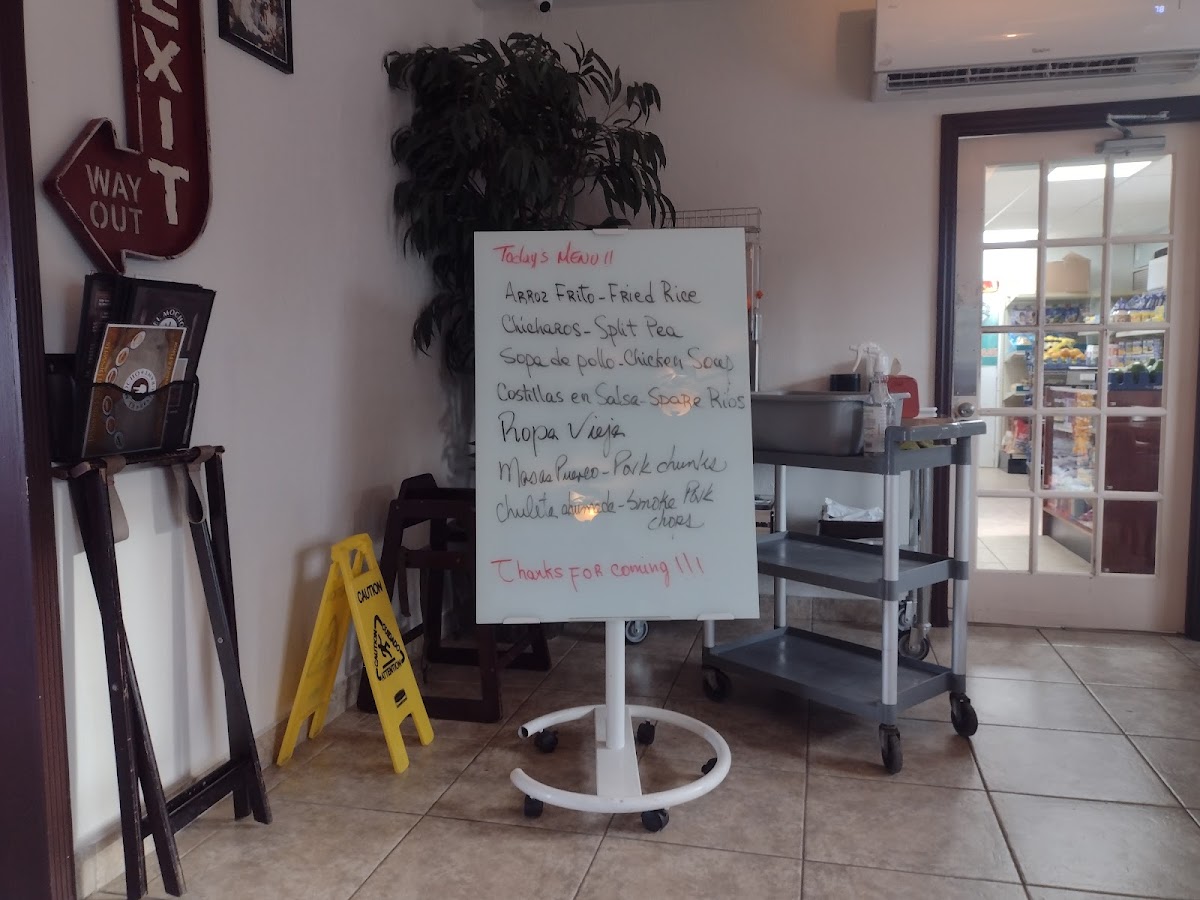 EXIT
WAY
OUT
Today's MENU!!
ARROZ FRITO - FRIED RICE
Chicharos - Split Pea
Sopa de pollo - Chicken Soup
Costillas en Salsa - Spare Ribs
Ropa Vieja
Masas Puerco - Pork chunks
chuleta ahumada - smoke Pork
chops
Thanks FOR coming!!!
CAUTION
CAUTION
CUIDADO
ATTENTION
78